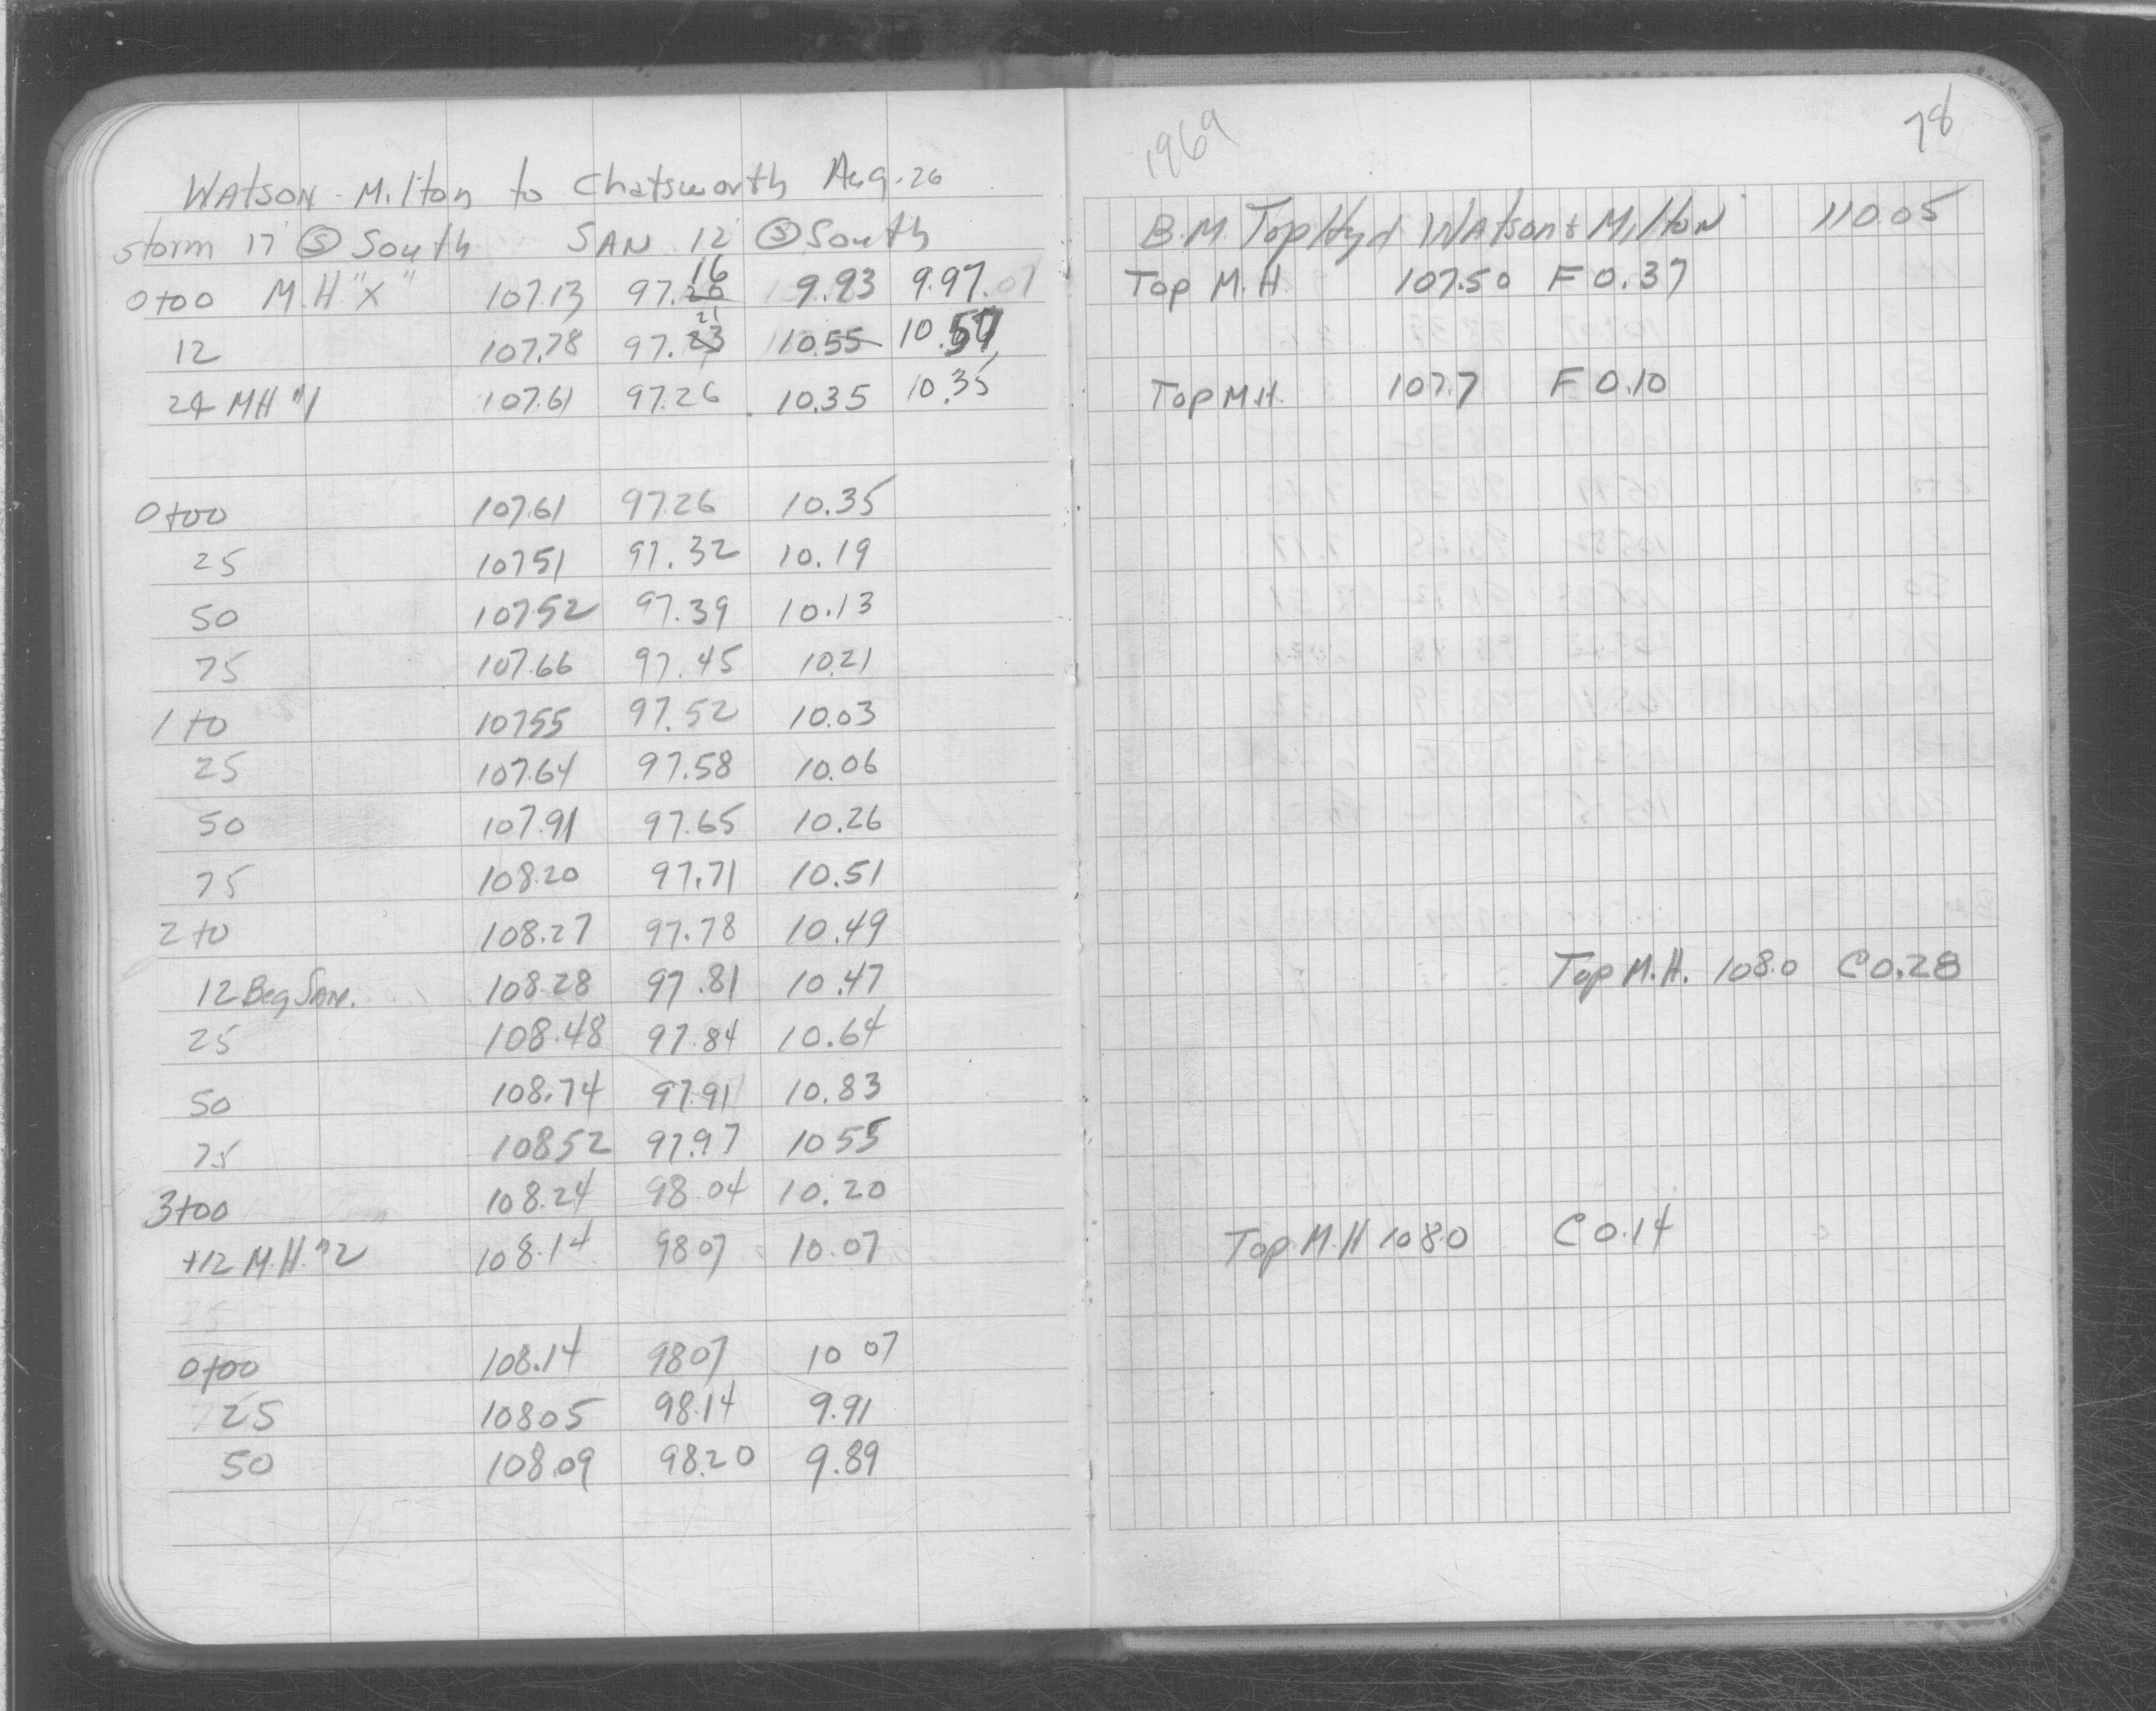 Watson - Milton to Chatsworth Aug. 26
Storm 17 Ⓢ South SAN 12 Ⓢ South
0+00 M.H. "X" 107.13 97.20 16 9.93 9.97
12 107.78 97.23 21 10.55 10.57
24 MH #1 107.61 97.26 10.35 10.35
0+00 107.61 97.26 10.35
25 10751 97.32 10.19
50 10752 97.39 10.13
75 107.66 97.45 1021
1+0 10755 97.52 10.03
25 107.64 97.58 10.06
50 107.91 97.65 10.26
75 108.20 97.71 10.51
2+0 108.27 97.78 10.49
12 Beg San. 108.28 97.81 10.47
25 108.48 97.84 10.64
50 108.74 97.91 10.83
75 10852 97.97 1055
3+00 108.24 98 04 10.20
+12 M.H. #2 108.14 9807 10.07
25
0+00 108.14 9807 10 07
25 10805 98.14 9.91
50 108.09 98.20 9.89
1969
78
B.M. Top Hyd Watson & Milton 110.05
Top M.H. 107.50 F 0.37
Top M.H. 107.7 F 0.10
Top M.H. 108.0 C 0.28
Top M.H 108.0 C 0.14